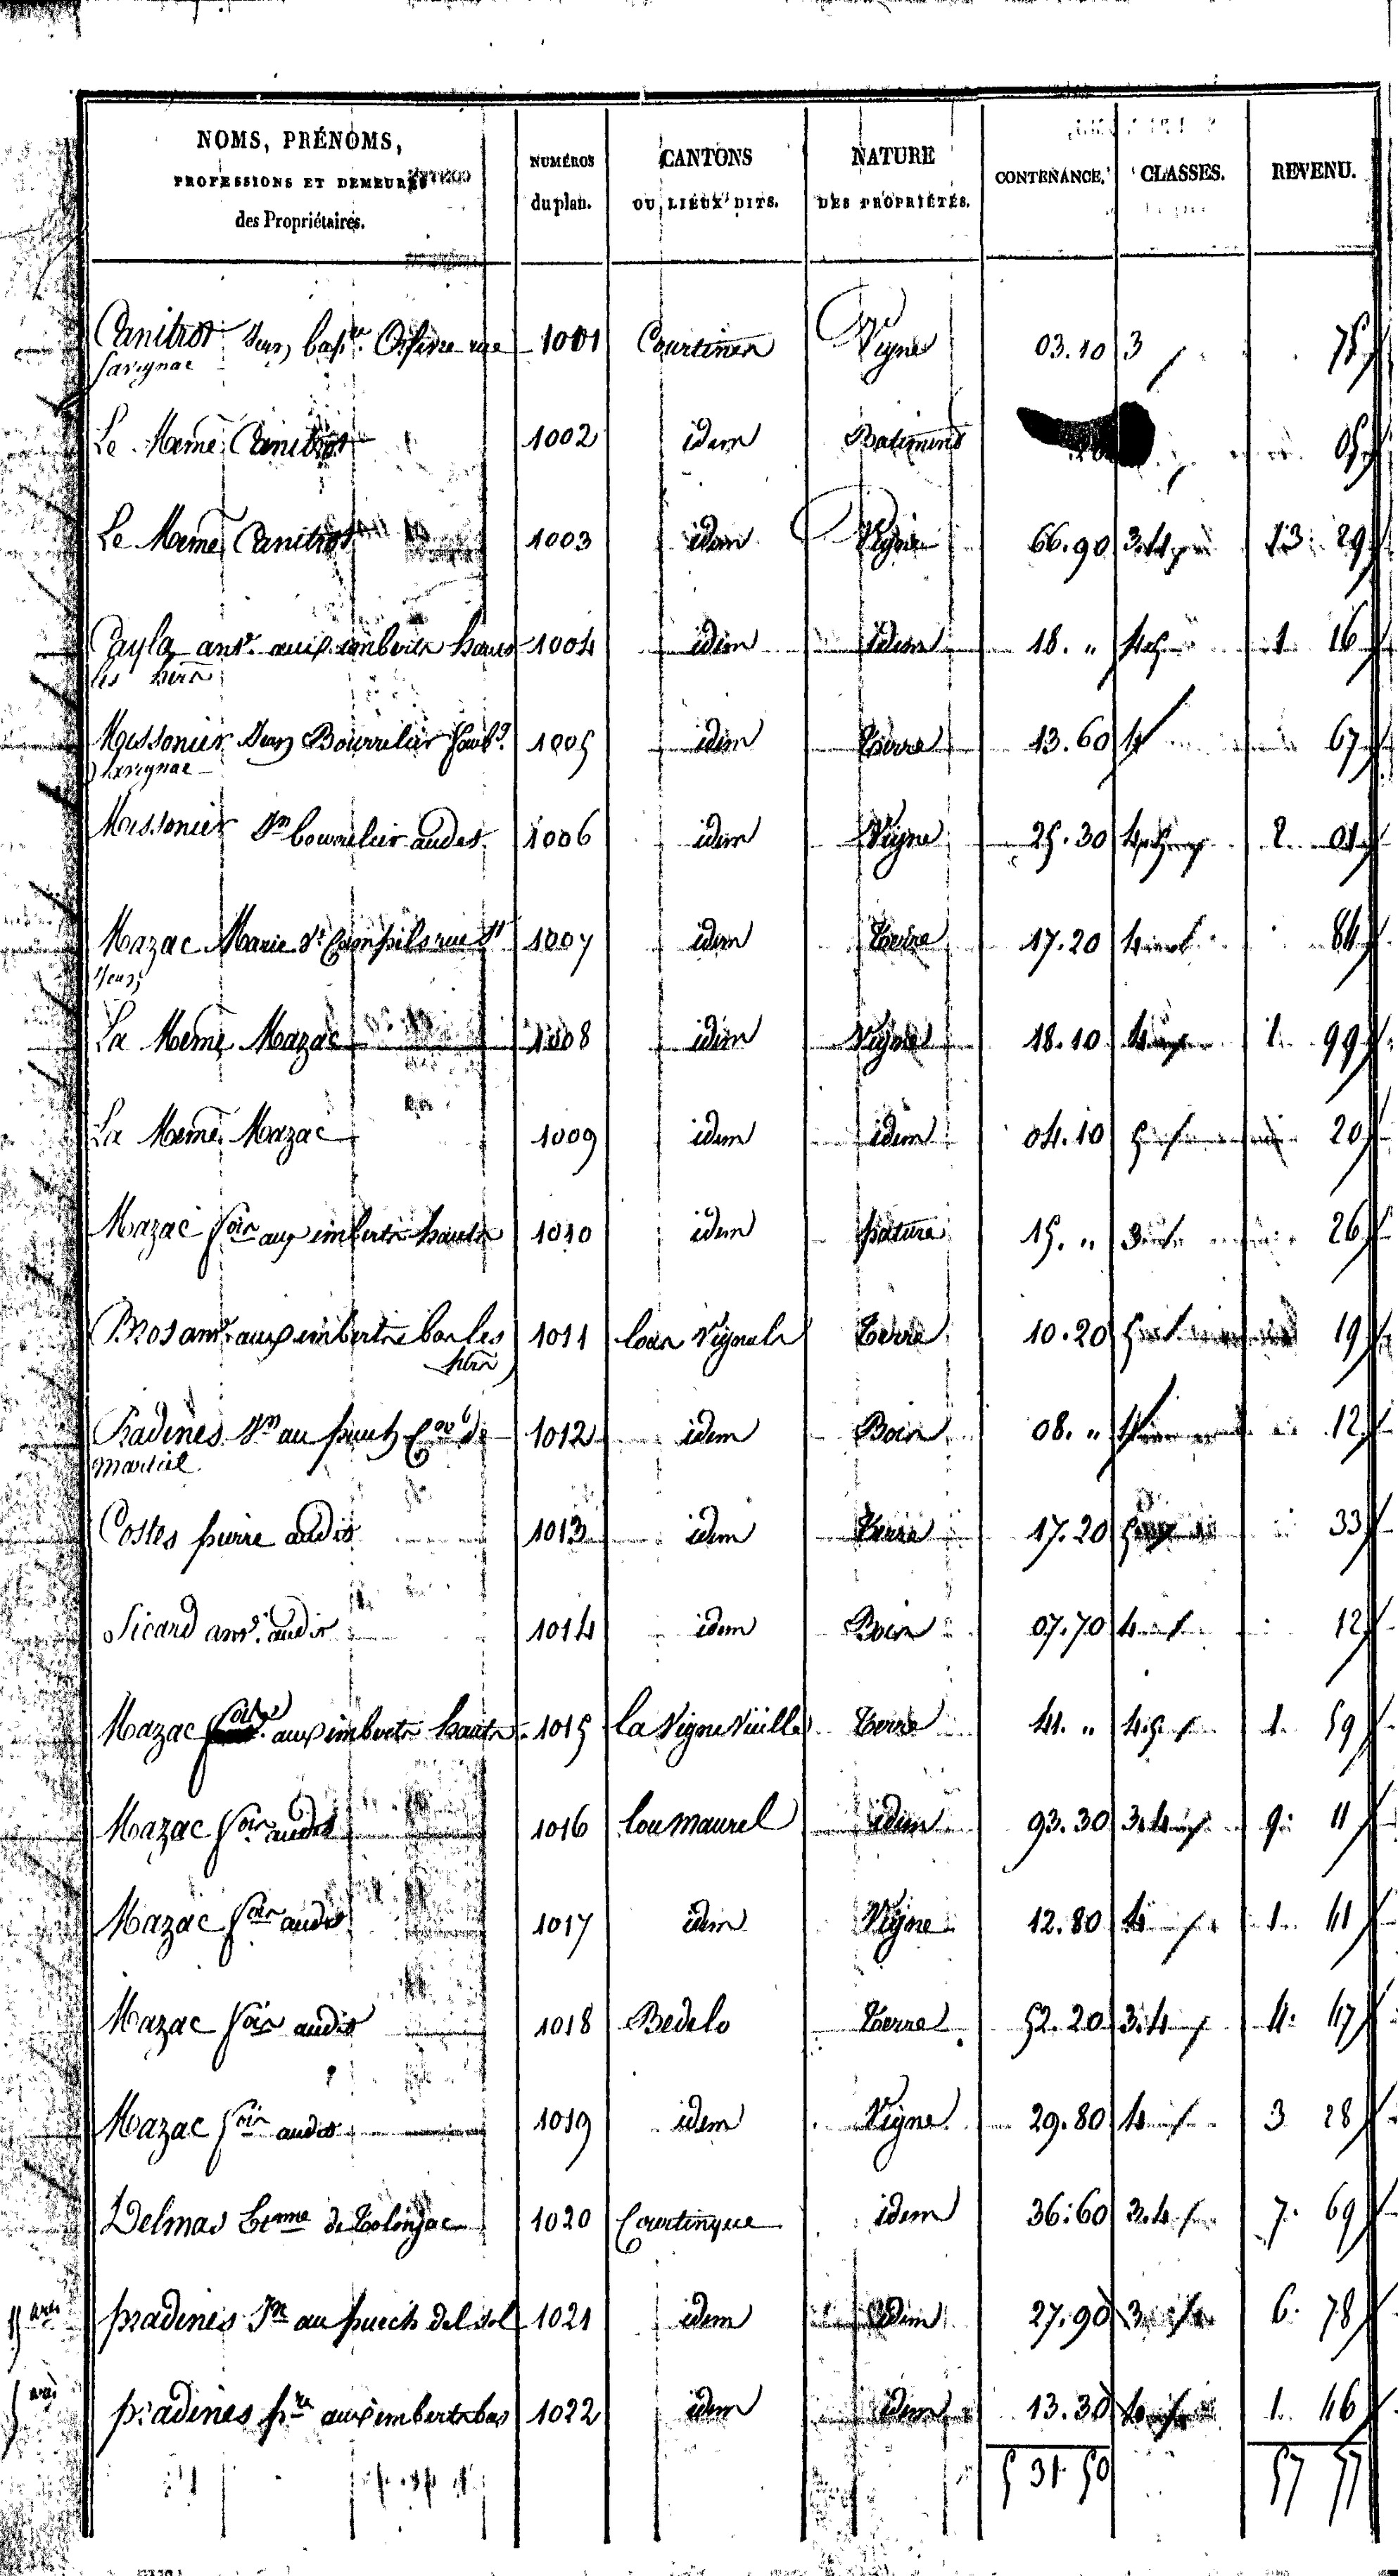 NOMS, PRÉNOMS,
PROFESSIONS ET DEMEURES
des Propriétaires.
NUMÉROS
du plan.
CANTONS
OU LIEUX DITS.
NATURE
DES PROPRIÉTÉS.
CONTENANCE.
CLASSES.
REVENU.
Canitrot Jean bapte Orfèvre rue 1001 Courtines Vigne 03.10 3 75
Savignac
Le Meme Canitrot 1002 idem Batiment 05
Le Meme Canitrot 1003 idem Vigne 66.90 3.4 13 29
Cayla ant. aux imberts hauts 1004 idem idem 18. " 1 16
les hers
Massonier Jean Bourrelier faubg 1005 idem Terre 13.60 4 67
Savignac
Massonier Jn bourrelier audit 1006 idem Vigne 25.30 2 01
Mazac Marie Ve rue St 1007 idem Terre 17.20 4 84
Jean
La Meme Mazac 1008 idem Vigne 18.10 4 1 99
La Meme Mazac 1009 idem idem 04.10 5 20
Mazac aux imberts hauts 1010 idem pature 15. " 3 26
Bros ant. aux imberts bas les 1011 Vignals Terre 10.20 5 19
hers
Pradines Jn au puech de 1012 idem Bois 08. " 4 12
Martiel
Costes pierre audit 1013 idem Terre 17.20 5 33
Sicard ant. audit 1014 idem Bois 07.70 4 12
Mazac aux imberts hauts 1015 la Vigne Vieille Terre 41. " 4.5 1 59
Mazac audit 1016 lou maurel idem 93.30 3.4 9 11
Mazac audit 1017 idem Vigne 12.80 4 1 41
Mazac audit 1018 Bedelo Terre 52.20 3.4 4 47
Mazac audit 1019 idem Vigne 29.80 4 3 28
Delmas Etienne de Tolonjac 1020 Courtingue idem 36.60 3.4 7 69
pradines Jn au puech del sol 1021 idem idem 27.90 3 6 78
pradines pre aux imberts bas 1022 idem idem 13.30 4 1 46
5 31 50 57 57